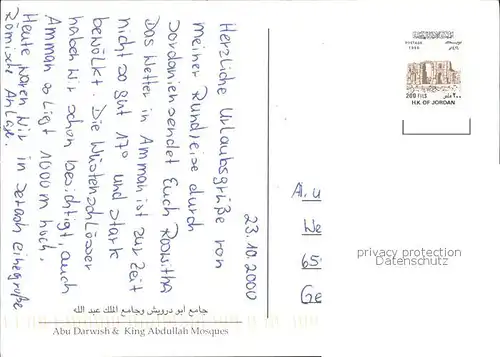 23.10.2000
Herzliche Urlaubsgrüße von
meiner Rundreise durch
Jordanien sendet Euch Roswitha
Das Wetter in Amman ist zur Zeit
nicht so gut 17° und stark
bewölkt. Die Wüstenschlösser
haben wir schon besichtigt, auch
Amman es ligt 1000 m hoch.
Heute waren wir in Jerash eine große
Römische Anlage.
جامع ابو درويش وجامع الملك عبد الله
Abu Darwish & King Abdullah Mosques
POSTAGE
200 FILS
H.K. OF JORDAN
Al. u
We
65
Ge
privacy protection
Datenschutz